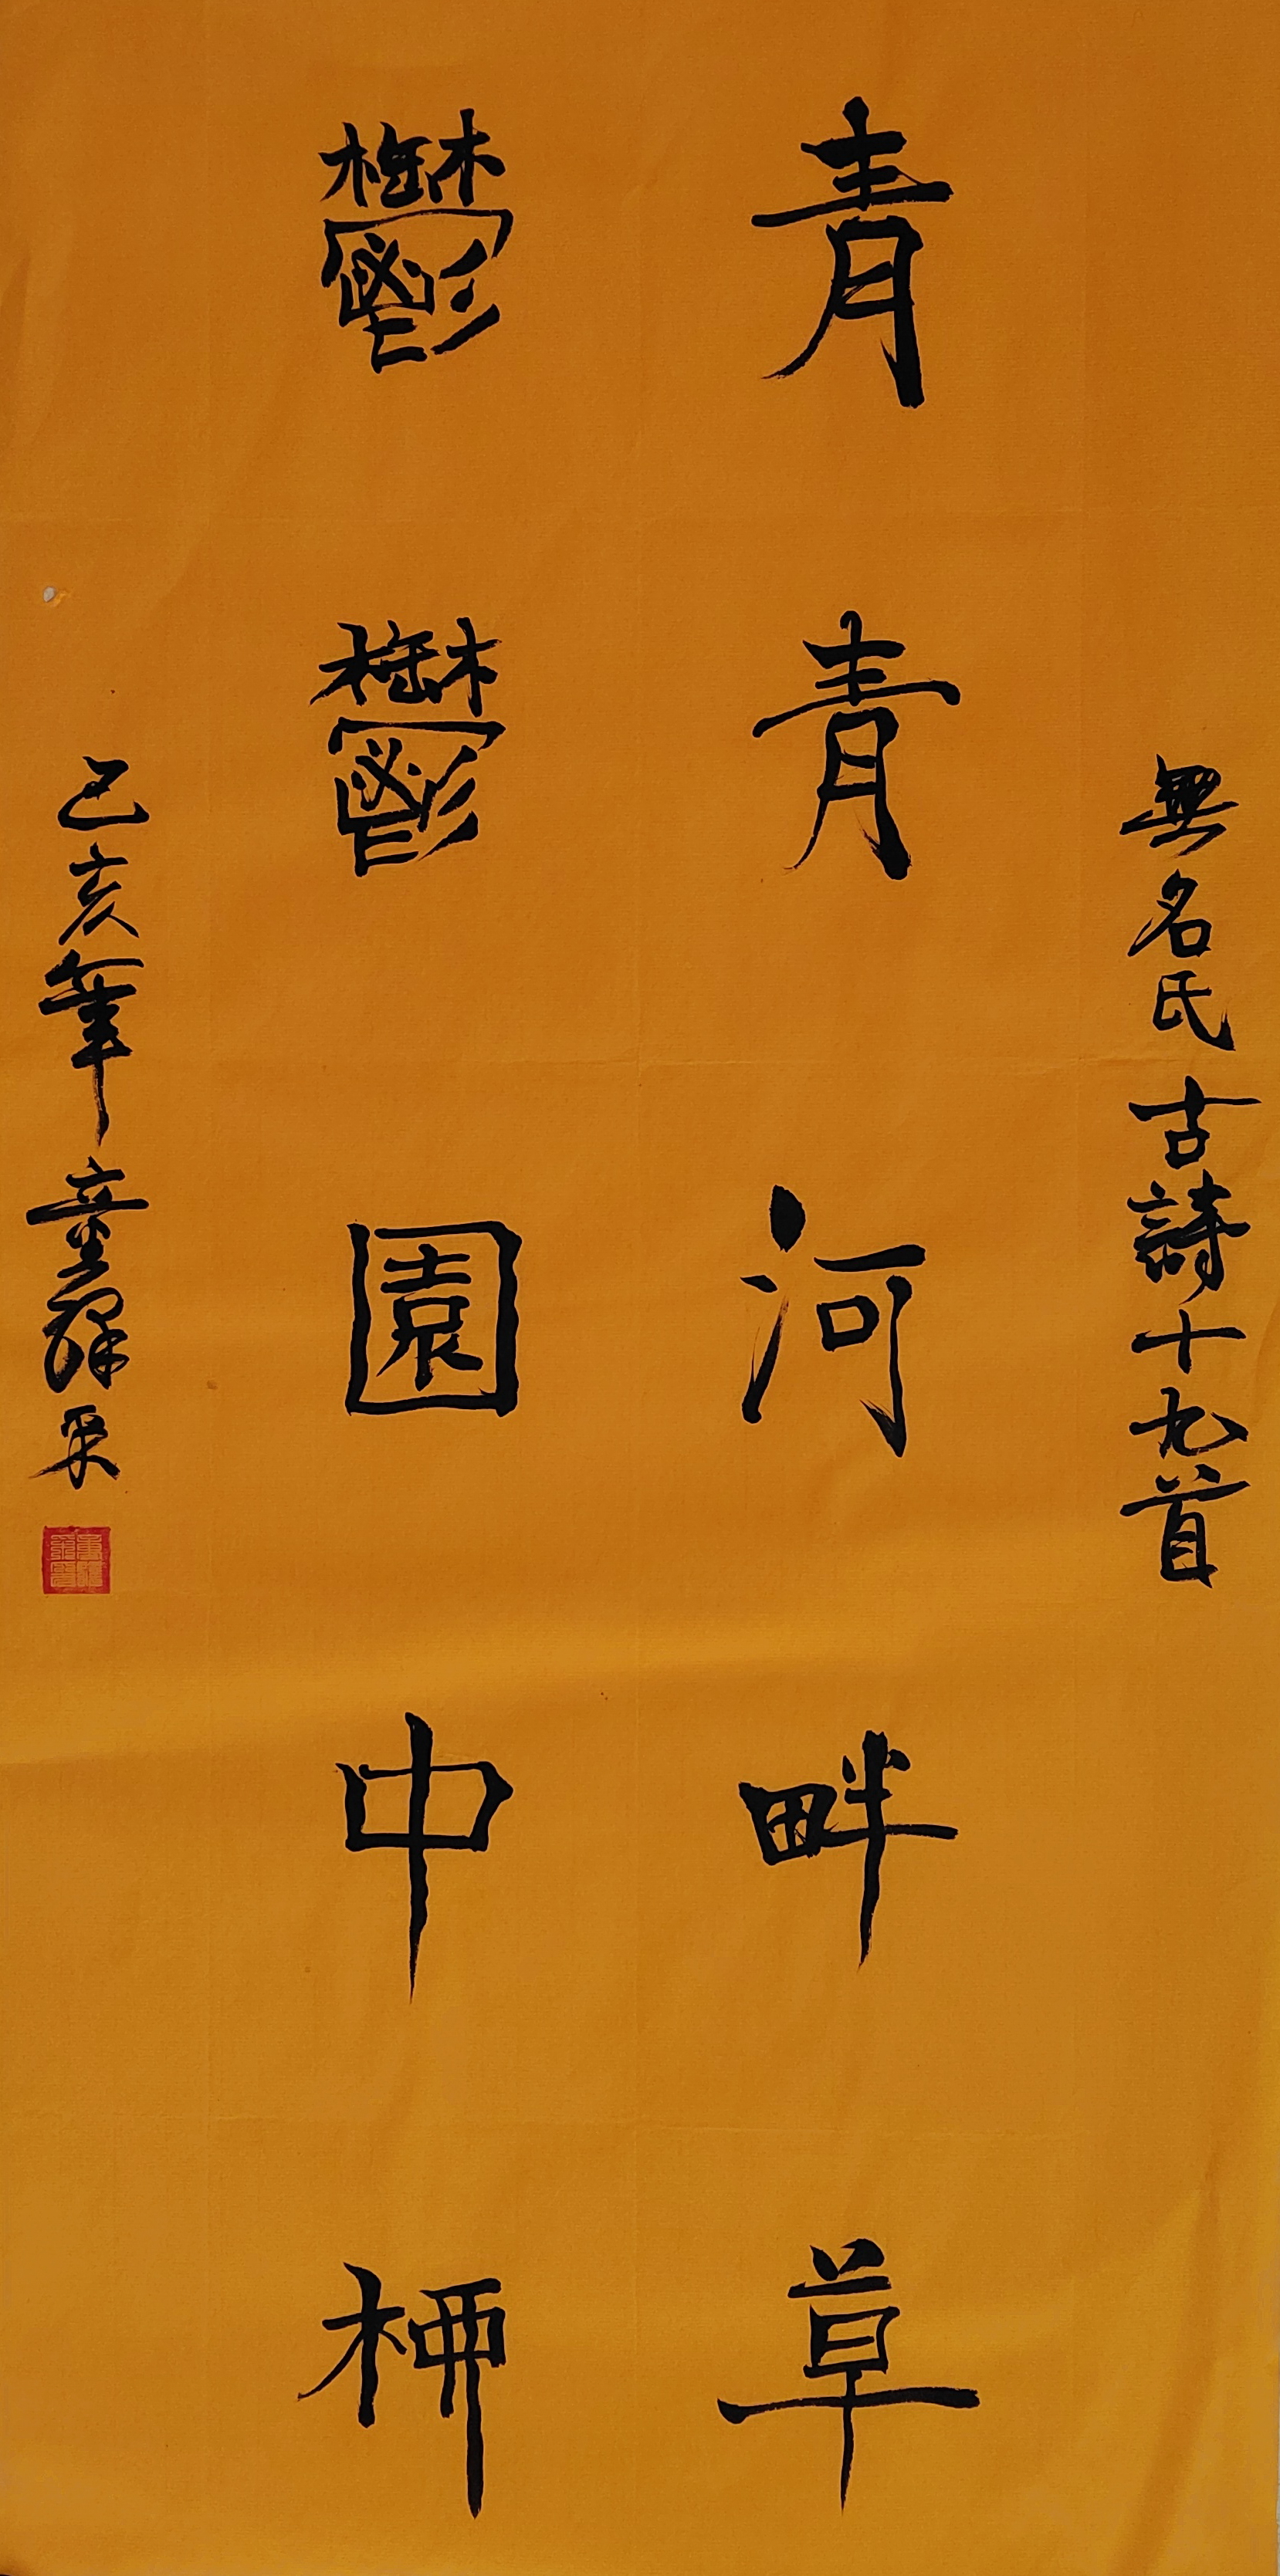 無名氏古詩十九首
青青河畔草
鬱鬱園中柳
己亥年童